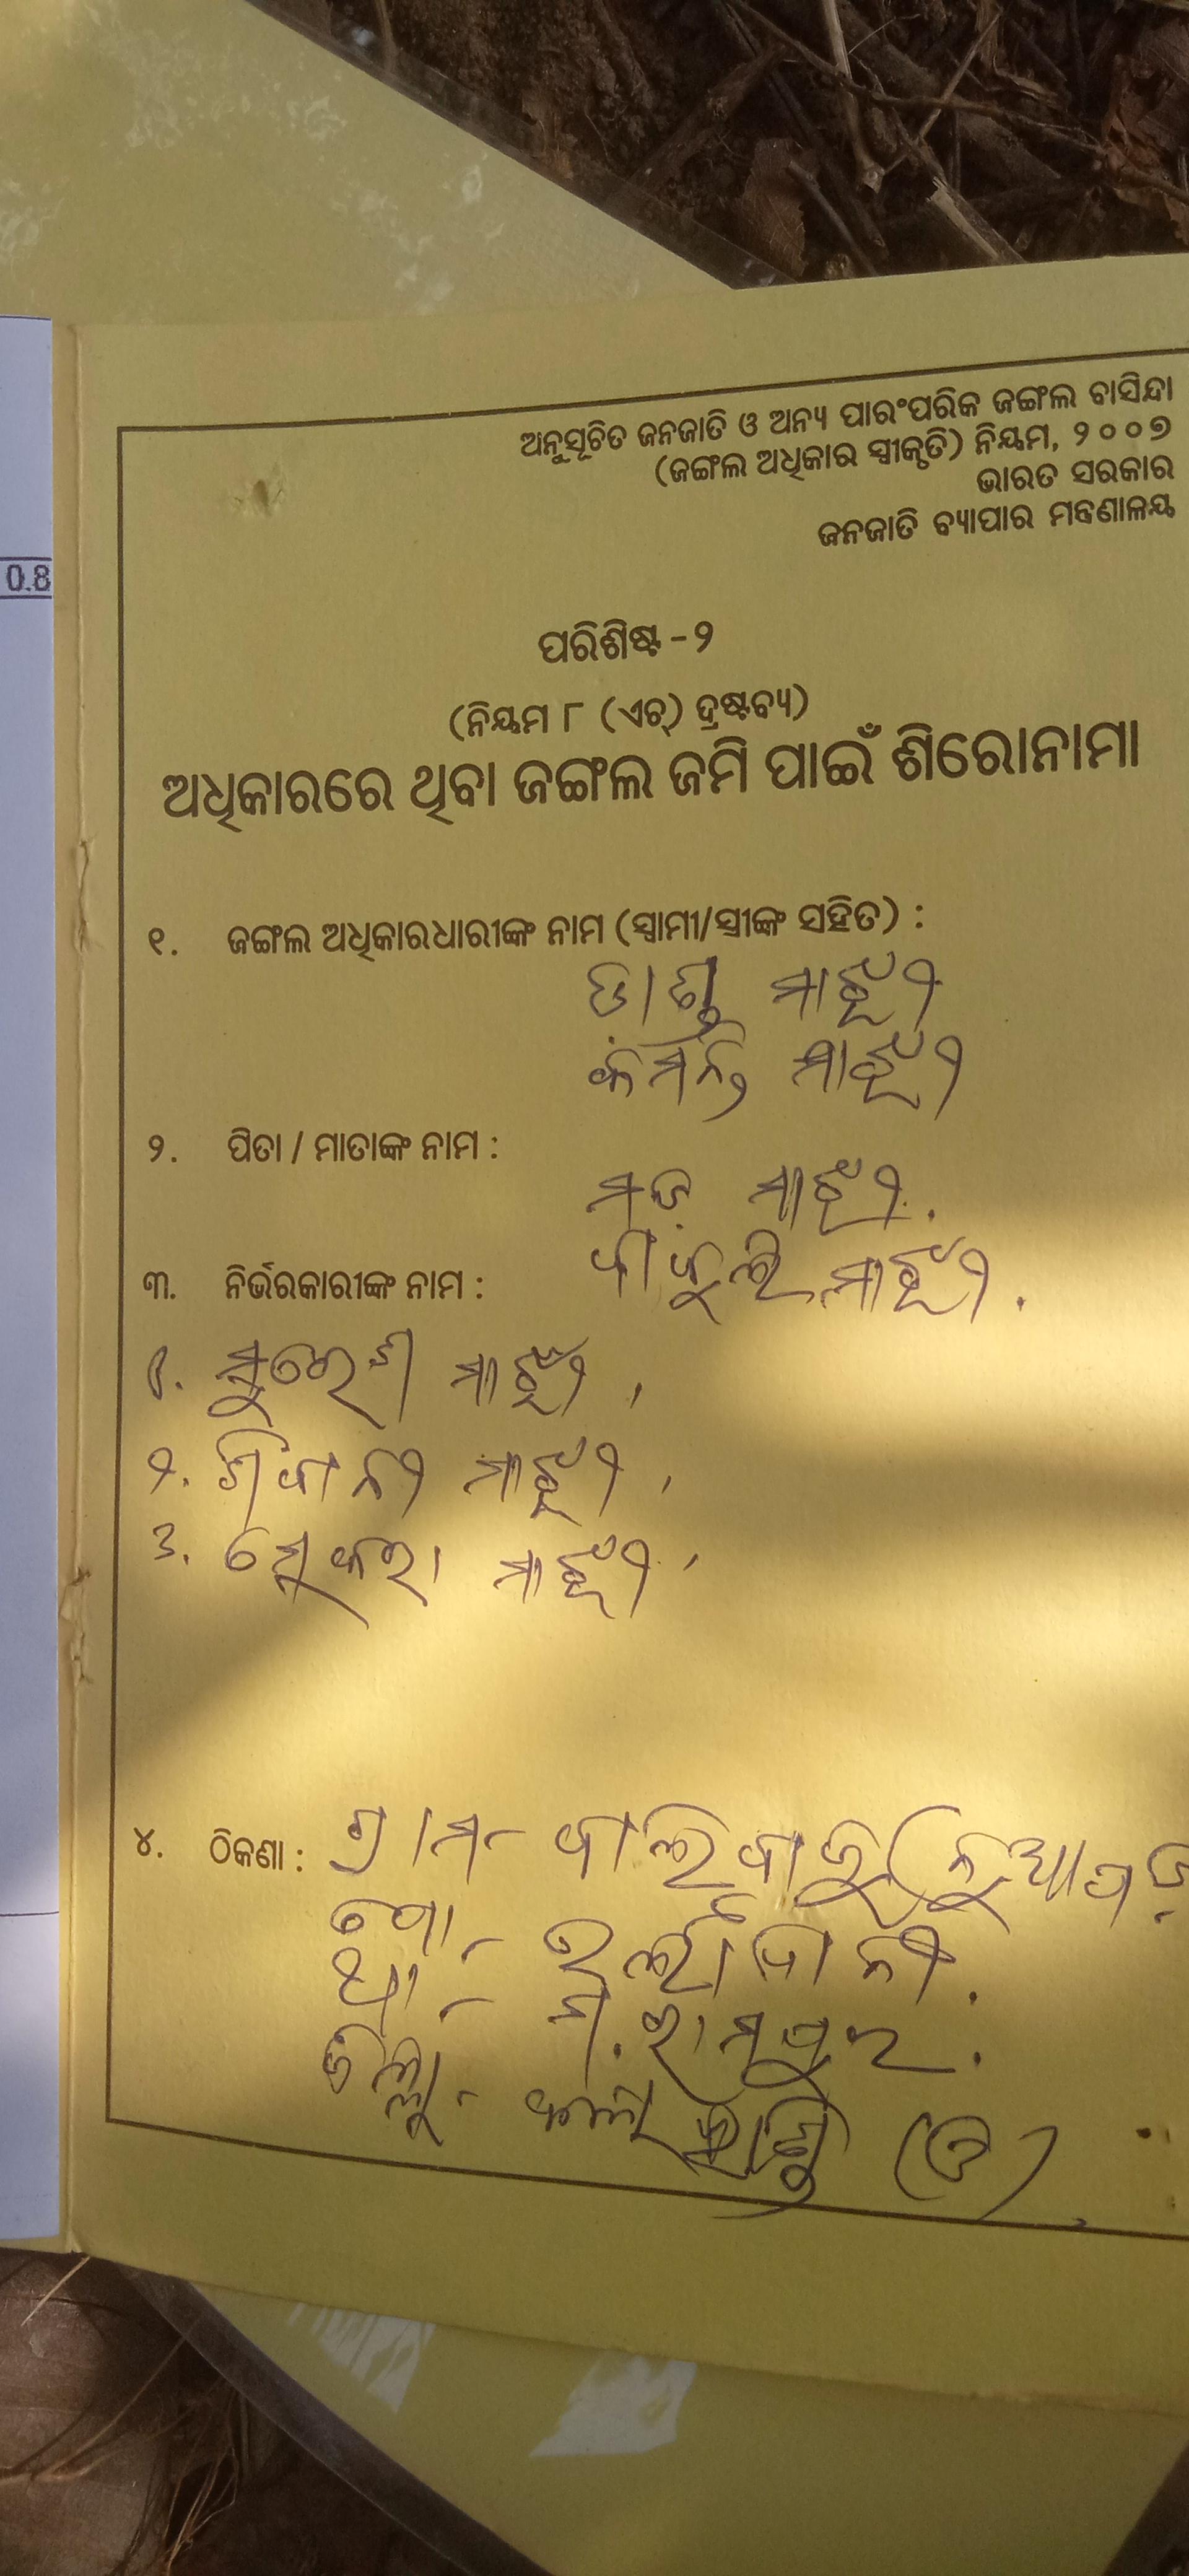 0.8
ଅନୁସୂଚିତ ଜନଜାତି ଓ ଅନ୍ୟ ପାରଂପରିକ ଜଙ୍ଗଲ ବାସିନ୍ଦା
(ଜଙ୍ଗଲ ଅଧିକାର ସ୍ୱୀକୃତି) ନିୟମ, ୨୦୦୭
ଭାରତ ସରକାର
ଜନଜାତି ବ୍ୟାପାର ମନ୍ତ୍ରଣାଳୟ
ପରିଶିଷ୍ଟ -୨
(ନିୟମ ୮ (ଏଚ୍) ଦ୍ରଷ୍ଟବ୍ୟ)
ଅଧିକାରରେ ଥିବା ଜଙ୍ଗଲ ଜମି ପାଇଁ ଶିରୋନାମା
୧. ଜଙ୍ଗଲ ଅଧିକାରଧାରୀଙ୍କ ନାମ (ସ୍ୱାମୀ/ସ୍ତ୍ରୀଙ୍କ ସହିତ) :
ମାଝୀ
ମାଝୀ
୨. ପିତା / ମାତାଙ୍କ ନାମ :
ମାଝୀ.
ମାଝୀ.
୩. ନିର୍ଭରକାରୀଙ୍କ ନାମ :
୧. ସୁରେଶ ମାଝୀ
୨. ଶିବାନୀ ମାଝୀ
3. ମାଝୀ
୪. ଠିକଣା : ଗ୍ରାମ-
ପୋ-
ଥା- ମ.ରାମପୁର.
ଜିଲ୍ଲା-